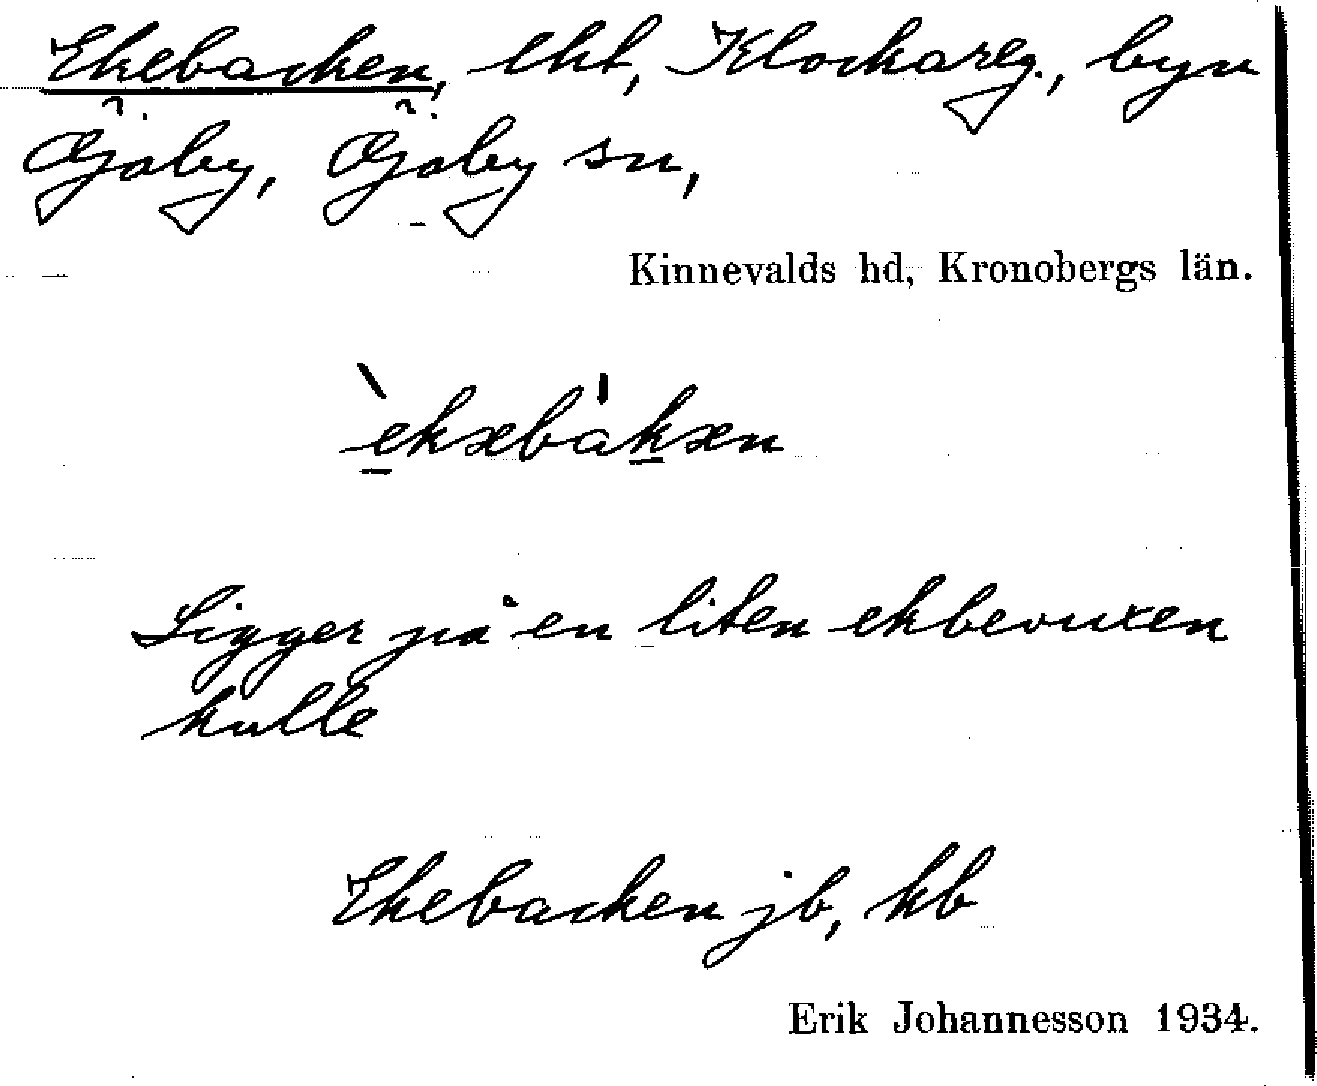 Ekebacken, lht, Klockareg., byn
Öjaby, Öjaby sn,
Kinnevalds hd, Kronobergs län.
Ligger på en liten ekbevuxen
kulle
Ekebacken jb, kb
Erik Johannesson 1934.